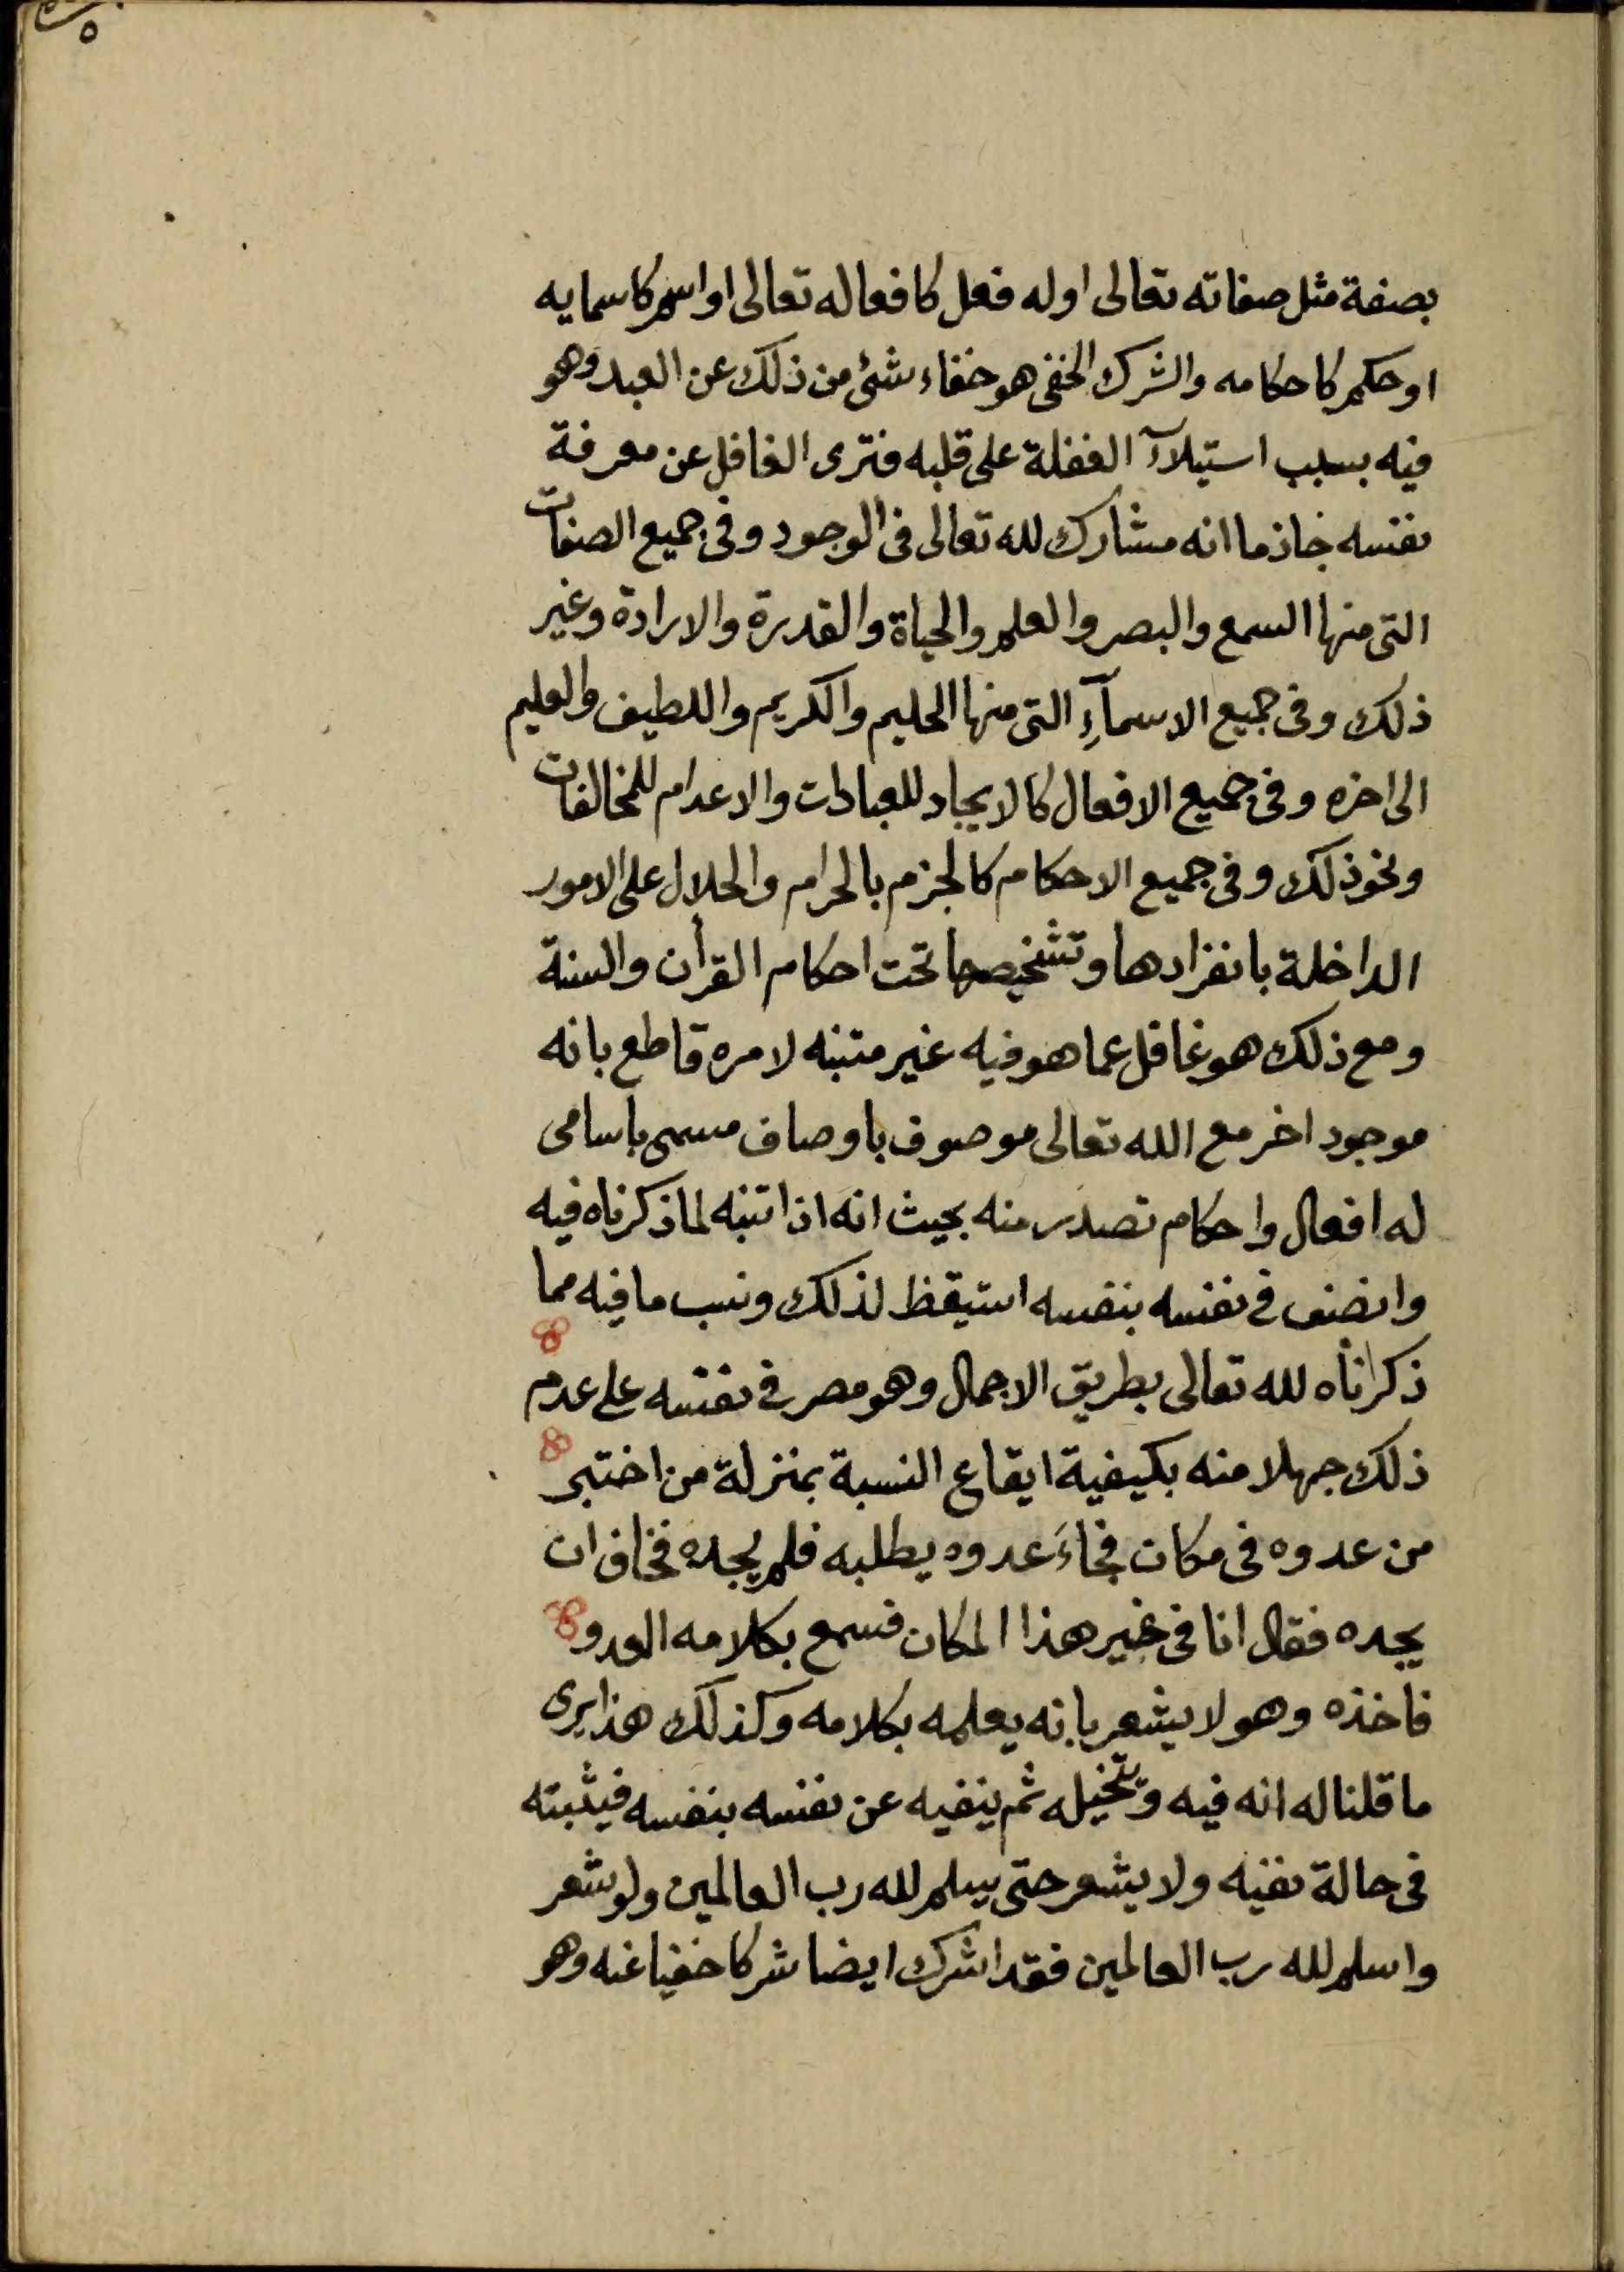 ٥
بصفة مثل صفاته تعالى او له فعل كافعاله تعالى او اسم كاسمايه
او حكم كاحكامه والشرك الخفي هو خفاء شئ من ذلك عن العبد وهو
فيه بسبب استيلآء الغفلة على قلبه فترى الغافل عن معرفة
نفسه جازما انه مشارك لله تعالى فى الوجود وفى جميع الصفات
التى منها السمع والبصر والعلم والحياة والقدرة والارادة وغير
ذلك وفى جميع الاسمآءِ التى منها الحليم والكريم واللطيف والعليم
الى اخره وفى جميع الافعال كالايجاد للعبادات والاعدام للمخالفات
ونحو ذلك وفى جميع الاحكام كالجزم بالحرام والحلال على الامور
الداخلة بانفرادها وتشخيصها تحت احكام القرأن والسنة
ومع ذلك هو غافل عما هو فيه غير متنبه لامره قاطع بانه
موجود اخر مع الله تعالى موصوف باوصاف مسمى باسامى
له افعال واحكام تصدر منه بحيث انه اذا تنبه لما ذكرناه فيه
وانصف فى نفسه بنفسه استيقظ لذلك ونسب ما فيه مما
ذكرناه لله تعالى بطريق الاجمال وهو مصر فى نفسه على عدم
ذلك جهلا منه بكيفية ايقاع النسبة بمنزلة من اختبى
من عدوه فى مكان فجاءَ عدوه يطلبه فلم يجده فخاف ان
يجده فقال انا فى غير هذا المكان فسمع بكلامه العدو
فاخذه وهو لا يشعر بانه يعلمه بكلامه وكذلك هذا يرى
ما قلنا له انه فيه ويتخيله ثم ينفيه عن نفسه بنفسه فيثبته
فى حالة نفيه ولا يشعر حتى يسلم لله رب العالمين ولو شعر
واسلم لله رب العالمين فقد اشرك ايضا شركا خفيا عنه وهو